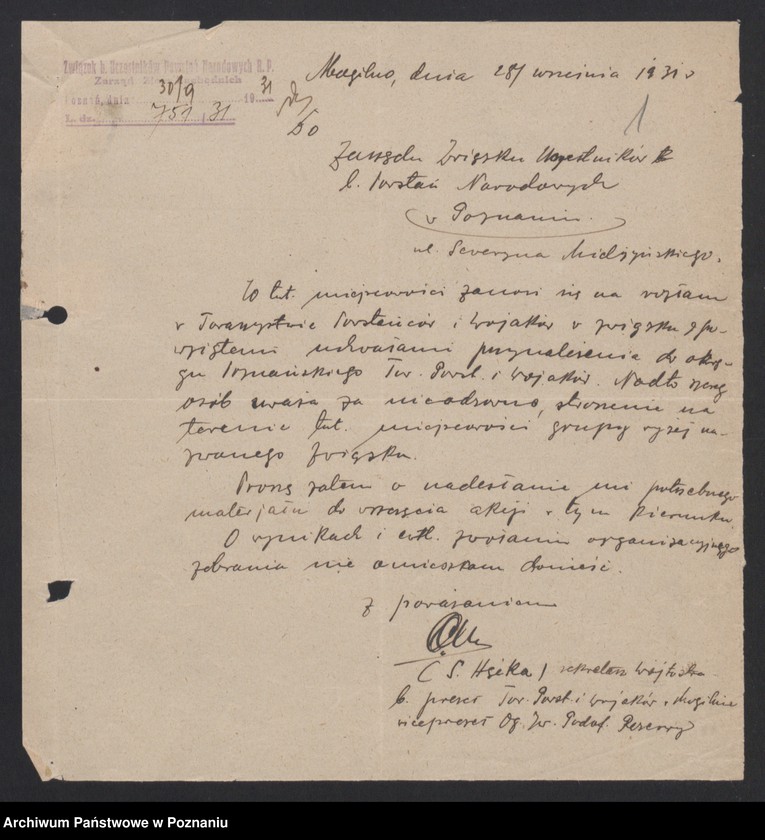 Związek b. Uczestników Powstań Narodowych R. P.
Zarząd
Poznań, dnia 30/9 19 31
L. dz. 751/31
Mogilno, dnia 28/ września 1931 r
60
1
Zarządu Związku Uczestników
b. Powstań Narodowych
w Poznaniu.
ul. Seweryna Mielżyńskiego.
W tut. miejscowości zanosi się na rozłam
w Towarzystwie Powstańców i Wojaków w związku z po-
wziętemi uchwałami przynależenia do okrę-
gu Poznańskiego Tow. Powst. i Wojaków. Nadto szereg
osób uważa za nieodzowne, stworzenie na
terenie tut. miejscowości grupy wyżej na-
zwanego Związku.
Proszę zatem o nadesłanie mi potrzebnego
materjału do wszczęcia akcji w tym kierunku.
O wynikach i ewtl. zwołaniu organizacyjnego
zebrania nie omieszkam donieść.
z poważaniem
(S. Hęćka) sekretarz
b. prezes Tow. Powst. i Wojaków w Mogilnie
wiceprezes Og. Zw. Podof. Rezerwy
Archiwum Państwowe w Poznaniu